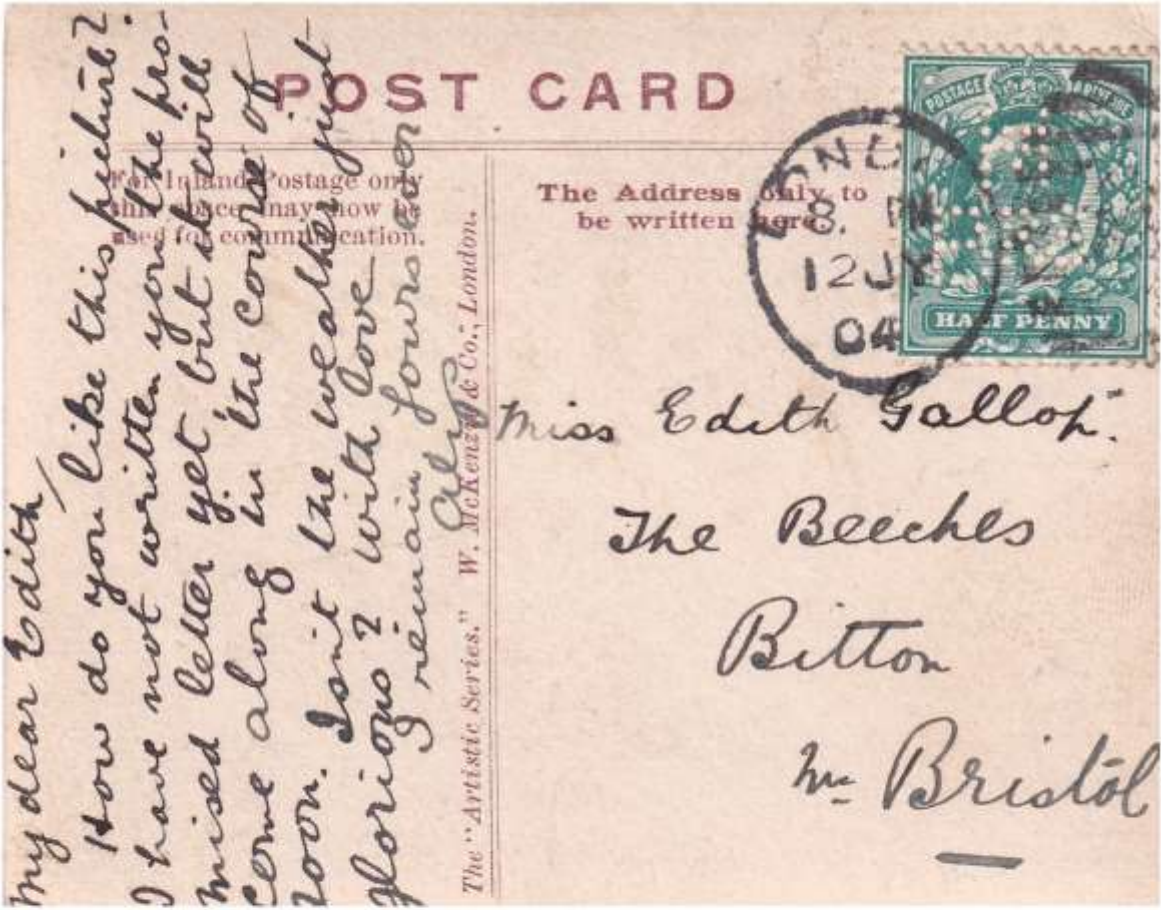 POST CARD
For Inland Postage only
this space may now be
used for communication.
The Address only to
be written here.
The "Artistic Series." W. McKenzie & Co., London.
POSTAGE
HALF PENNY
8. PM
12 JY
04
My dear Edith,
How do you like this picture?
I have not written you the pro-
mised letter yet, but it will
come along in the course of
noon. Isn't the weather just
glorious? With love
I remain yours
Miss Edith Gallop.
The Beeches
Bitton
Nr Bristol